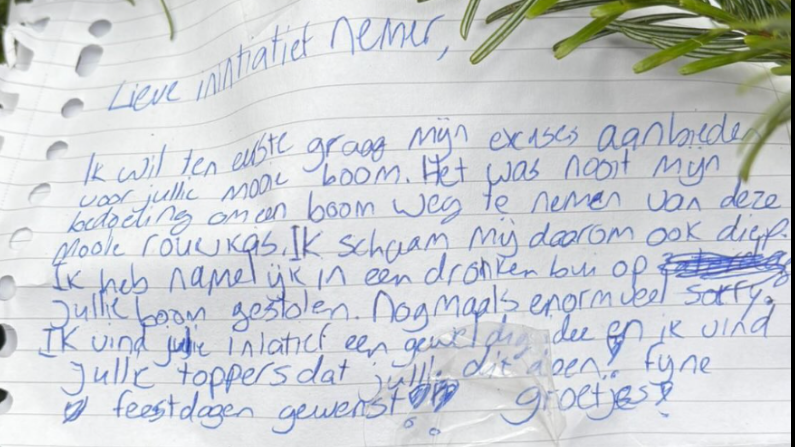 Lieve inintiatiet nemer,
Ik wil ten eerste graag mijn excuses aanbieden
voor jullie mooie boom. Het was nooit mijn
bedoeling om een boom weg te nemen van deze
mooie rouwkas. Ik schaam mij daarom ook diep.
Ik heb namelijk in een dronken bui op
jullie boom gestolen. Nogmaals enorm veel sorry.
Ik vind jullie inlatief een geweldig idee en ik vind
jullie toppers dat jullie dit doen! fyne
feestdagen gewenst!! groetjes!